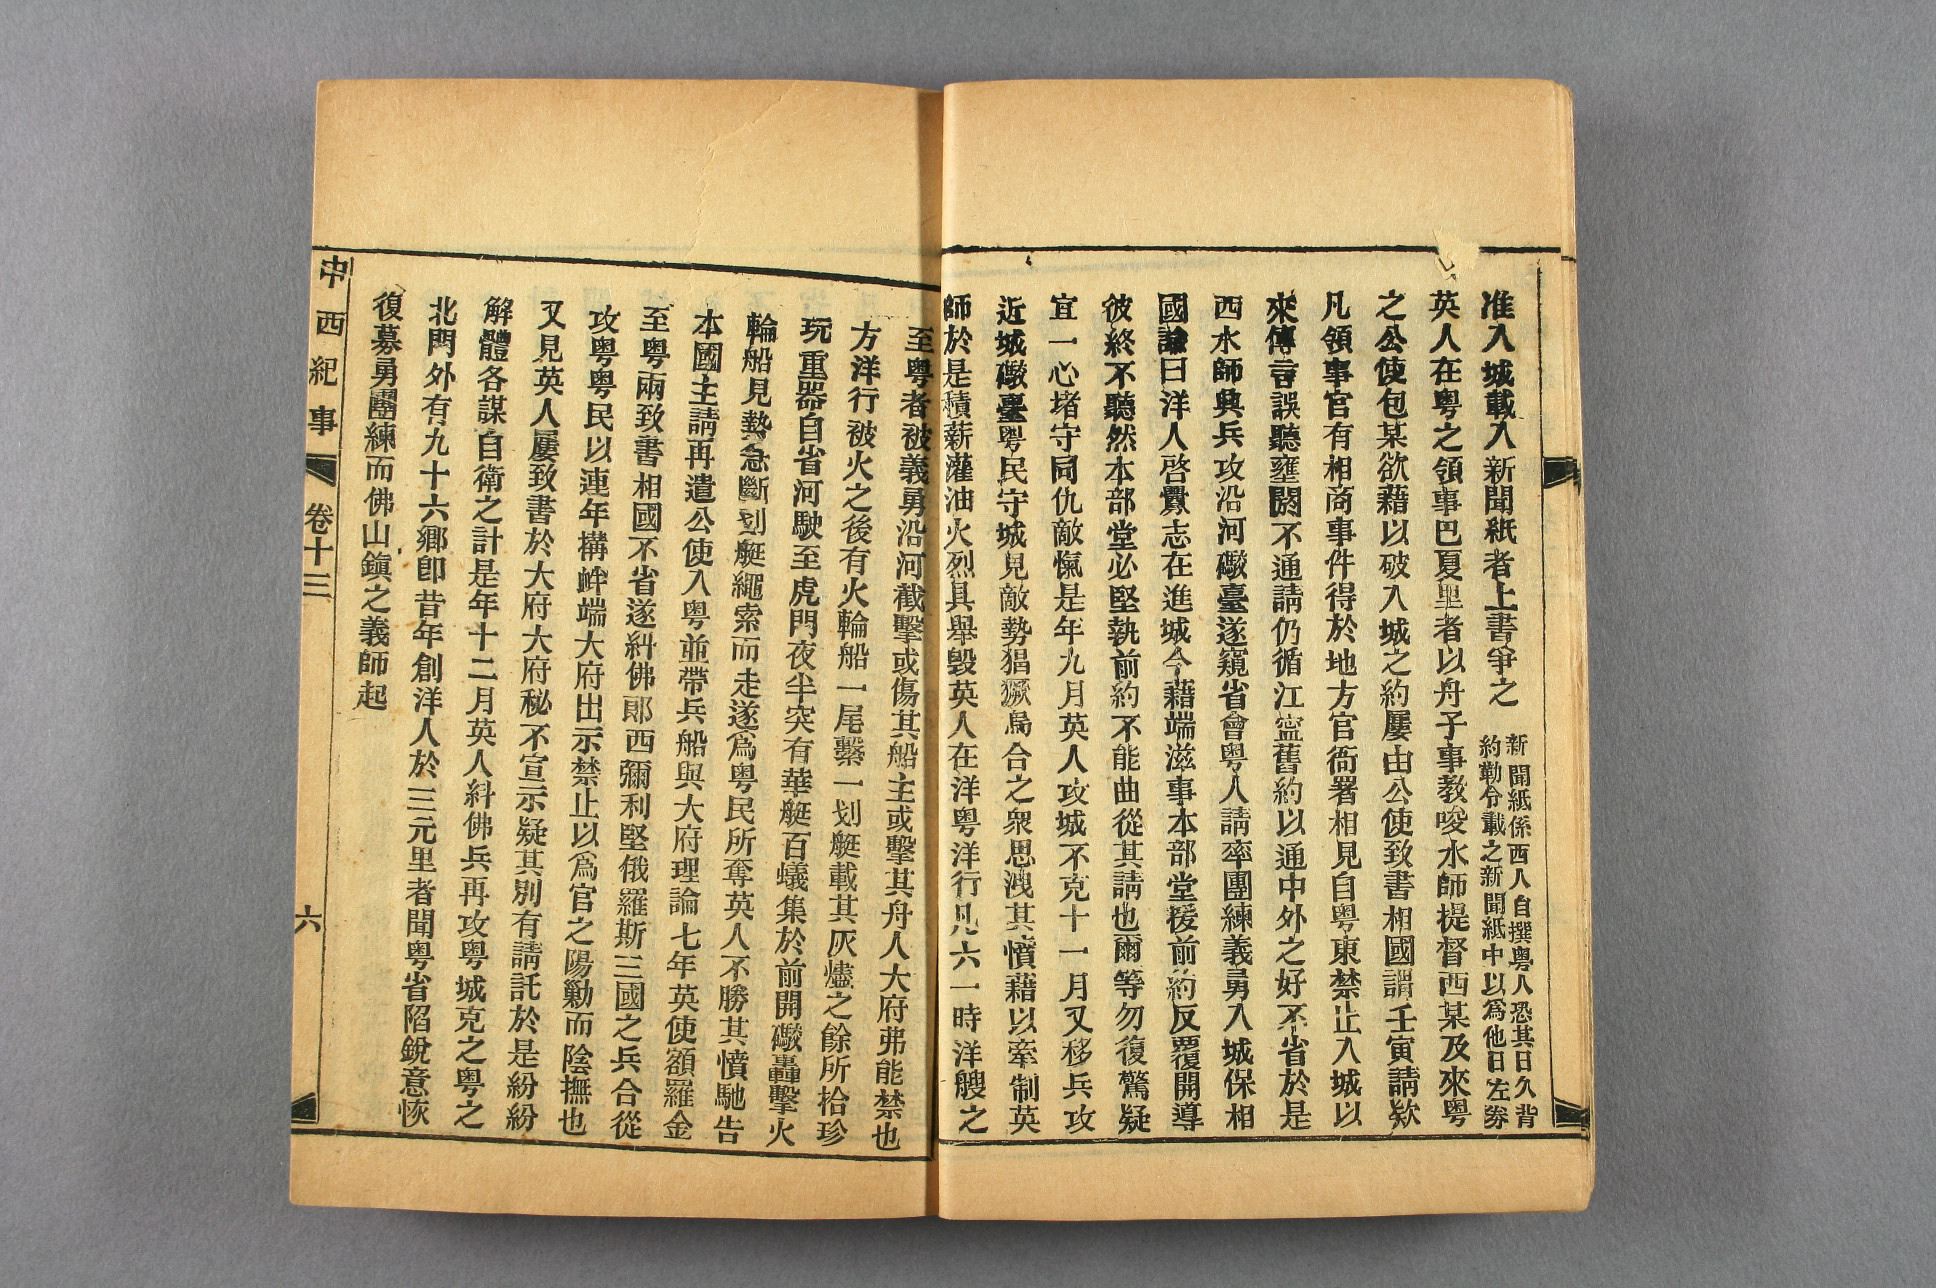 准入城載入新聞紙者上書爭之
新聞紙係西人自撰粵人恐其日久背
約勒令載之新聞紙中以爲他日左券
英人在粵之領事巴夏里者以舟子事教唆水師提督西某及來粵
之公使包某欲藉以破入城之約屢由公使致書相國謂壬寅請欵
凡領事官有相商事件得於地方官衙署相見自粵東禁止入城以
來傳言誤聽壅閼不通請仍循江寧舊約以通中外之好不省於是
西水師興兵攻沿河礮臺遂窺省會粵人請率團練義勇入城保相
國諭曰洋人啓釁志在進城今藉端滋事本部堂援前約反覆開導
彼終不聽然本部堂必堅執前約不能曲從其請也爾等勿復驚疑
宜一心堵守同仇敵愾是年九月英人攻城不克十一月又移兵攻
近城礮臺粵民守城見敵勢猖獗烏合之衆思洩其憤藉以牽制英
師於是積薪灌油火烈具舉毀英人在洋粵洋行凡六一時洋艘之
至粵者被義勇沿河截擊或傷其船主或擊其舟人大府弗能禁也
方洋行被火之後有火輪船一尾繫一划艇載其灰燼之餘所拾珍
玩重器自省河駛至虎門夜半突有華艇百蟻集於前開礮轟擊火
輪船見勢急斷划艇繩索而走遂爲粵民所奪英人不勝其憤馳告
本國主請再遣公使入粵並帶兵船與大府理論七年英使額羅金
至粵兩致書相國不省遂糾佛郎西彌利堅俄羅斯三國之兵合從
攻粵粵民以連年搆衅端大府出示禁止以爲官之陽勦而陰撫也
又見英人屢致書於大府大府秘不宣示疑其別有請託於是紛紛
解體各謀自衛之計是年十二月英人糾佛兵再攻粵城克之粵之
北門外有九十六鄉卽昔年創洋人於三元里者聞粵省陷銳意恢
復募勇團練而佛山鎭之義師起
中西紀事 卷十三 六